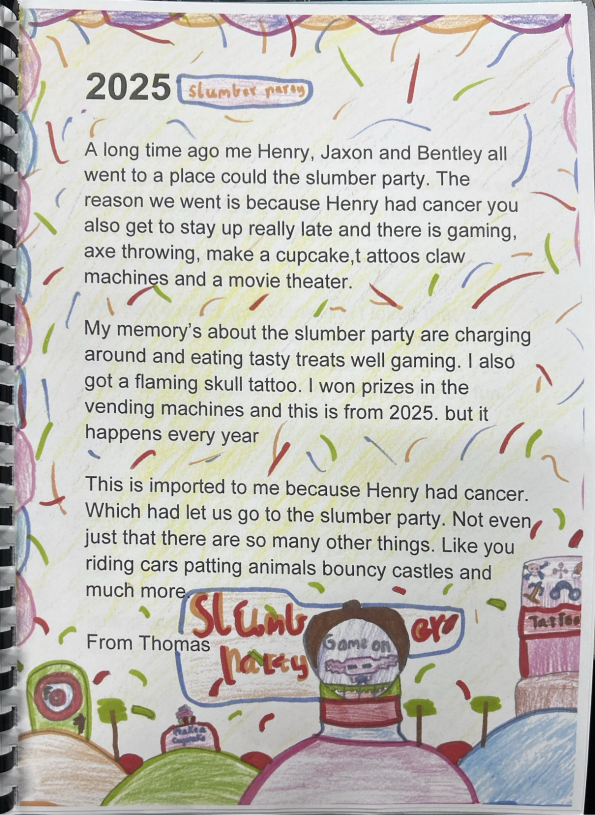 2025 slumber party
A long time ago me Henry, Jaxon and Bentley all
went to a place could the slumber party. The
reason we went is because Henry had cancer you
also get to stay up really late and there is gaming,
axe throwing, make a cupcake,t attoos claw
machines and a movie theater.
My memory's about the slumber party are charging
around and eating tasty treats well gaming. I also
got a flaming skull tattoo. I won prizes in the
vending machines and this is from 2025. but it
happens every year
This is imported to me because Henry had cancer.
Which had let us go to the slumber party. Not even
just that there are so many other things. Like you
riding cars patting animals bouncy castles and
much more.
From Thomas
Slumb er
party
Game on
Tattoo
make a
cupcake